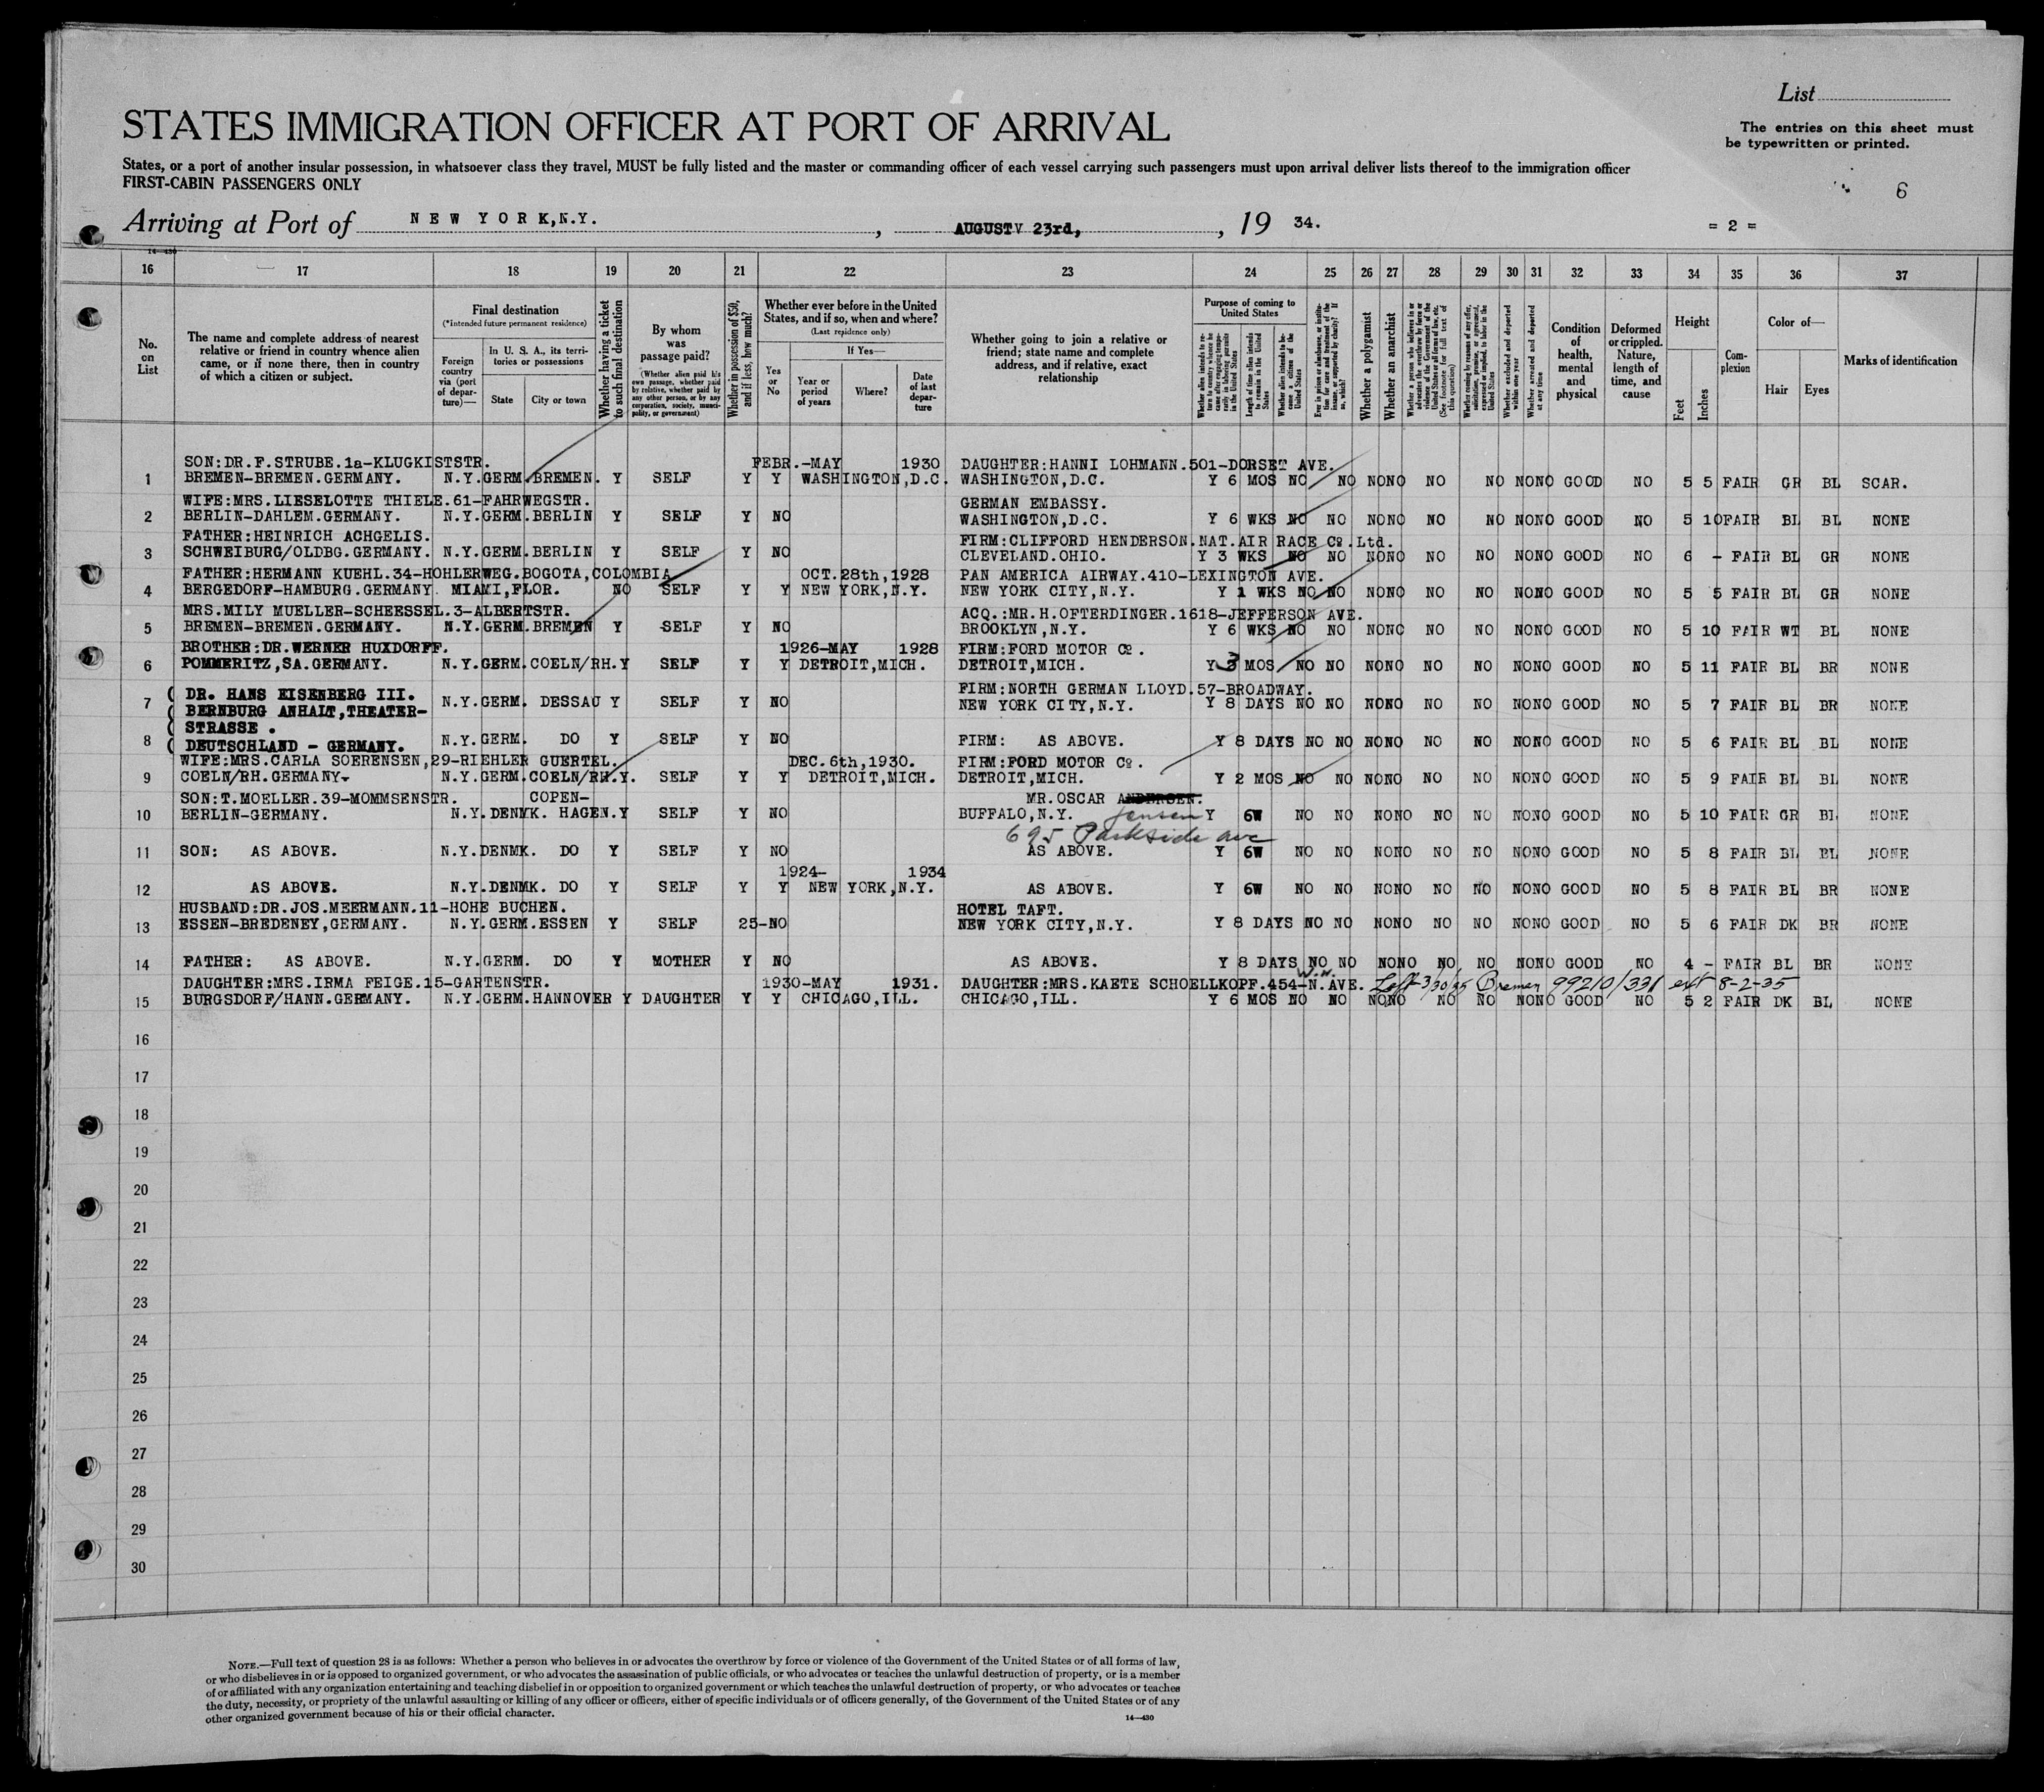 List
STATES IMMIGRATION OFFICER AT PORT OF ARRIVAL
The entries on this sheet must
be typewritten or printed.
States, or a port of another insular possession, in whatsoever class they travel, MUST be fully listed and the master or commanding officer of each vessel carrying such passengers must upon arrival deliver lists thereof to the immigration officer
FIRST-CABIN PASSENGERS ONLY
6
Arriving at Port of NEW YORK,N.Y. , AUGUST 23rd, , 19 34.
= 2 =
14-430
16 17 18 19 20 21 22 23 24 25 26 27 28 29 30 31 32 33 34 35 36 37
No. on List
The name and complete address of nearest relative or friend in country whence alien came, or if none there, then in country of which a citizen or subject.
Final destination
(*Intended future permanent residence)
Foreign country via (port of departure)—
In U. S. A., its territories or possessions
State
City or town
Whether having a ticket to such final destination
By whom was passage paid?
(Whether alien paid his own passage, whether paid by relative, whether paid by any other person, or by any corporation, society, municipality, or government)
Whether in possession of $50, and if less, how much?
Whether ever before in the United States, and if so, when and where?
(Last residence only)
Yes or No
If Yes—
Year or period of years
Where?
Date of last departure
Whether going to join a relative or friend; state name and complete address, and if relative, exact relationship
Purpose of coming to United States
Whether alien intends to return to country whence he came after engaging temporarily in laboring pursuits in the United States
Length of time alien intends to remain in the United States
Whether alien intends to become a citizen of the United States
Ever in prison or almshouse, or institution for care and treatment of the insane, or supported by charity? If so, which?
Whether a polygamist
Whether an anarchist
Whether a person who believes in or advocates the overthrow by force or violence of the Government of the United States or all forms of law, etc. (See footnote for full text of this question)
Whether coming by reasons of any offer, solicitation, promise, or agreement, expressed or implied, to labor in the United States
Whether excluded and deported within one year
Whether arrested and deported at any time
Condition of health, mental and physical
Deformed or crippled. Nature, length of time, and cause
Height
Feet
Inches
Complexion
Color of—
Hair
Eyes
Marks of identification
SON:DR.F.STRUBE.1a-KLUGKISTSTR. FEBR.-MAY 1930 DAUGHTER:HANNI LOHMANN.501-DORSET AVE.
1 BREMEN-BREMEN.GERMANY. N.Y.GERM.BREMEN. Y SELF Y Y WASHINGTON,D.C. WASHINGTON,D.C. Y 6 MOS NO NO NONO NO NO NONO GOOD NO 5 5 FAIR GR BL SCAR.
WIFE:MRS.LIESELOTTE THIELE.61-FAHRWEGSTR. GERMAN EMBASSY.
2 BERLIN-DAHLEM.GERMANY. N.Y.GERM.BERLIN Y SELF Y NO WASHINGTON,D.C. Y 6 WKS NO NO NONO NO NO NONO GOOD NO 5 10 FAIR BL BL NONE
FATHER:HEINRICH ACHGELIS. FIRM:CLIFFORD HENDERSON.NAT.AIR RACE Co.Ltd.
3 SCHWEIBURG/OLDBG.GERMANY. N.Y.GERM.BERLIN Y SELF Y NO CLEVELAND.OHIO. Y 3 WKS NO NO NONO NO NO NONO GOOD NO 6 - FAIR BL GR NONE
FATHER:HERMANN KUEHL.34-HOHLERWEG.BOGOTA,COLOMBIA OCT.28th,1928 PAN AMERICA AIRWAY.410-LEXINGTON AVE.
4 BERGEDORF-HAMBURG.GERMANY MIAMI,FLOR. NO SELF Y Y NEW YORK,N.Y. NEW YORK CITY,N.Y. Y 1 WKS NO NO NONO NO NO NONO GOOD NO 5 5 FAIR BL GR NONE
MRS.MILY MUELLER-SCHEESSEL.3-ALBERTSTR. ACQ.:MR.H.OFTERDINGER.1618-JEFFERSON AVE.
5 BREMEN-BREMEN.GERMANY. N.Y.GERM.BREMEN Y SELF Y NO BROOKLYN,N.Y. Y 6 WKS NO NO NONO NO NO NONO GOOD NO 5 10 FAIR WT BL NONE
BROTHER:DR.WERNER HUXDORFF. 1926-MAY 1928 FIRM:FORD MOTOR Co.
6 POMMERITZ,SA.GERMANY. N.Y.GERM.COELN/RH.Y SELF Y Y DETROIT,MICH. DETROIT,MICH. Y 3 MOS NO NO NONO NO NO NONO GOOD NO 5 11 FAIR BL BR NONE
DR. HANS EISENBERG III. FIRM:NORTH GERMAN LLOYD.57-BROADWAY.
7 BERNBURG ANHALT,THEATER- N.Y.GERM. DESSAU Y SELF Y NO NEW YORK CITY,N.Y. Y 8 DAYS NO NO NONO NO NO NONO GOOD NO 5 7 FAIR BL BR NONE
STRASSE .
8 DEUTSCHLAND - GERMANY. N.Y.GERM. DO Y SELF Y NO FIRM: AS ABOVE. Y 8 DAYS NO NO NONO NO NO NONO GOOD NO 5 6 FAIR BL BL NONE
WIFE:MRS.CARLA SOERENSEN,29-RIEHLER GUERTEL. DEC.6th,1930. FIRM:FORD MOTOR Co.
9 COELN/RH.GERMANY- N.Y.GERM.COELN/RH.Y. SELF Y Y DETROIT,MICH. DETROIT,MICH. Y 2 MOS NO NO NONO NO NO NONO GOOD NO 5 9 FAIR BL BL NONE
SON:T.MOELLER.39-MOMMSENSTR. COPEN- MR.OSCAR ANDERSEN.
10 BERLIN-GERMANY. N.Y.DENMK. HAGEN.Y SELF Y NO BUFFALO,N.Y. Jensen Y 6W NO NO NONO NO NO NONO GOOD NO 5 10 FAIR GR BL NONE
695 Parkside ave
11 SON: AS ABOVE. N.Y.DENMK. DO Y SELF Y NO AS ABOVE. Y 6W NO NO NONO NO NO NONO GOOD NO 5 8 FAIR BL BL NONE
1924- 1934
12 AS ABOVE. N.Y.DENMK. DO Y SELF Y Y NEW YORK,N.Y. AS ABOVE. Y 6W NO NO NONO NO NO NONO GOOD NO 5 8 FAIR BL BR NONE
HUSBAND:DR.JOS.MEERMANN.11-HOHE BUCHEN. HOTEL TAFT.
13 ESSEN-BREDENEY,GERMANY. N.Y.GERM.ESSEN Y SELF 25-NO NEW YORK CITY,N.Y. Y 8 DAYS NO NO NONO NO NO NONO GOOD NO 5 6 FAIR DK BR NONE
14 FATHER: AS ABOVE. N.Y.GERM. DO Y MOTHER Y NO AS ABOVE. Y 8 DAYS NO NO NONO NO NO NONO GOOD NO 4 - FAIR BL BR NONE
DAUGHTER:MRS.IRMA FEIGE.15-GARTENSTR. 1930-MAY 1931. DAUGHTER:MRS.KAETE SCHOELLKOPF.454-N.AVE. W.W. Left 3/30/35 Bremen 99210/331 ext 8-2-35
15 BURGSDORF/HANN.GERMANY. N.Y.GERM.HANNOVER Y DAUGHTER Y Y CHICAGO,ILL. CHICAGO,ILL. Y 6 MOS NO NO NONO NO NO NONO GOOD NO 5 2 FAIR DK BL NONE
16
17
18
19
20
21
22
23
24
25
26
27
28
29
30
NOTE.—Full text of question 28 is as follows: Whether a person who believes in or advocates the overthrow by force or violence of the Government of the United States or of all forms of law,
or who disbelieves in or is opposed to organized government, or who advocates the assassination of public officials, or who advocates or teaches the unlawful destruction of property, or is a member
of or affiliated with any organization entertaining and teaching disbelief in or opposition to organized government or which teaches the unlawful destruction of property, or who advocates or teaches
the duty, necessity, or propriety of the unlawful assaulting or killing of any officer or officers, either of specific individuals or of officers generally, of the Government of the United States or of any
other organized government because of his or their official character.
14-430